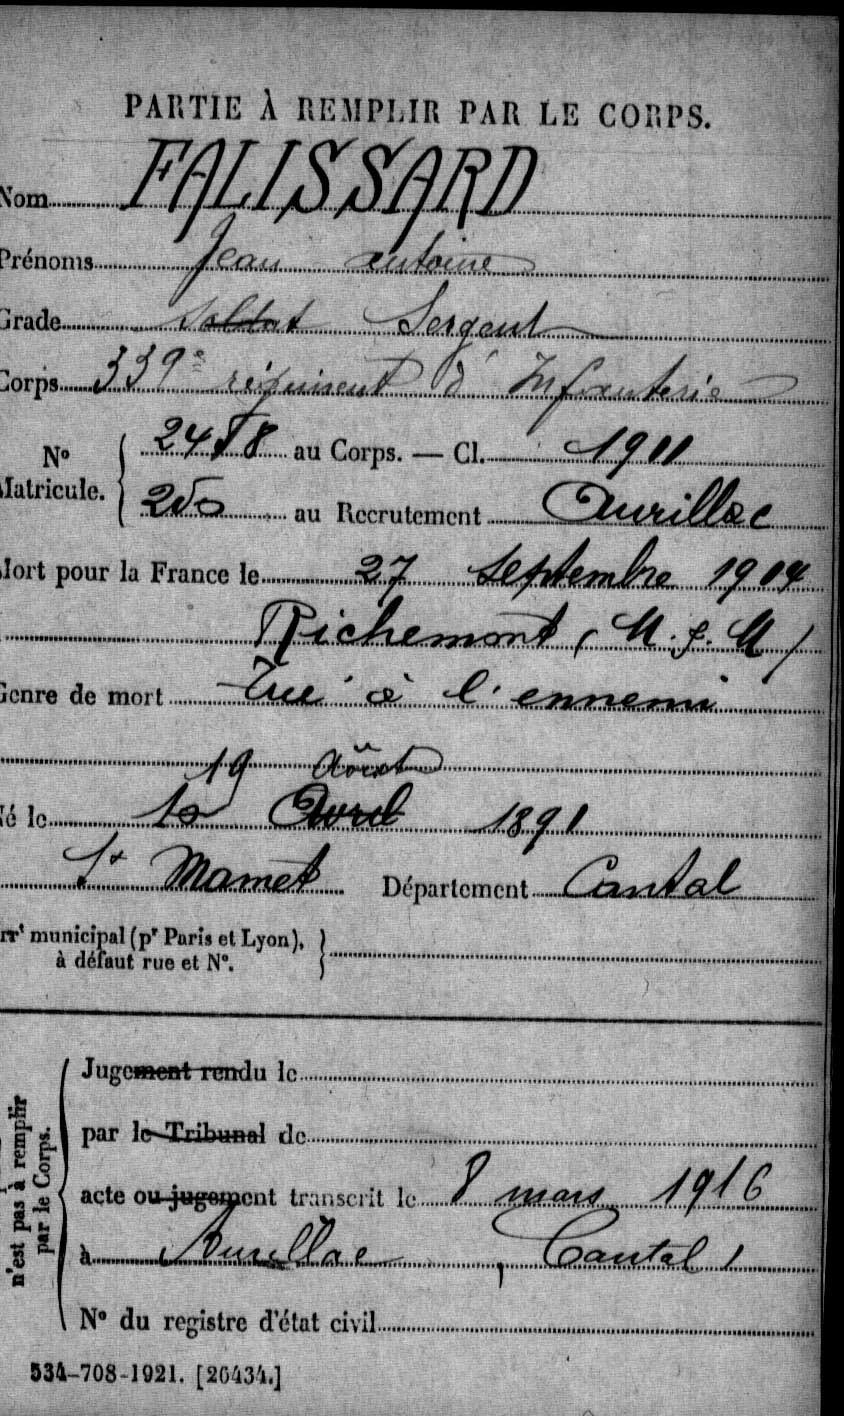 PARTIE À REMPLIR PAR LE CORPS.
Nom FALISSARD
Prénoms Jean antoine
Grade Soldat Sergent
Corps 339e régiment d'Infanterie
No Matricule. 2458 au Corps. — Cl. 1911
250 au Recrutement Aurillac
Mort pour la France le 27 septembre 1914
Richemont, (M. & M)
Genre de mort Tué à l'ennemi
19 Août
Né le 10 Avril 1891
St Mamet Département Cantal
Arrt municipal (pr Paris et Lyon),
à défaut rue et No.
Jugement rendu le
par le Tribunal de
acte ou jugement transcrit le 8 mars 1916
à Aurillac, Cantal
No du registre d'état civil
n'est pas à remplir
par le Corps.
534-708-1921. [26434.]